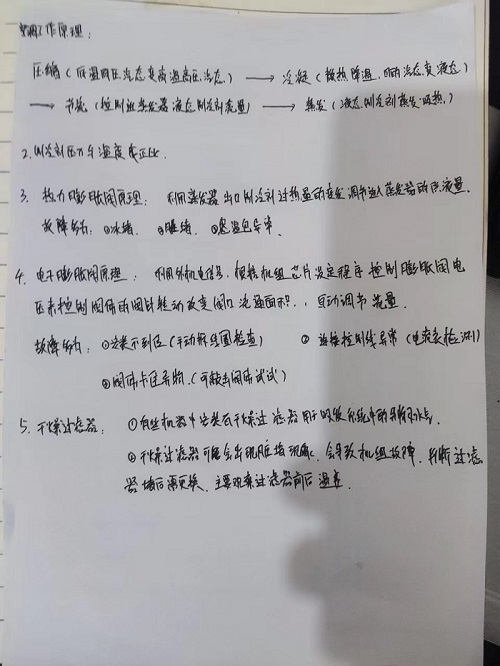 空调工作原理:
压缩(低温低压气态变高温高压气态) → 冷凝(散热降温,由气态变液态)
→ 节流(控制进蒸发器液态制冷剂流量) → 蒸发(液态制冷剂蒸发吸热)
2. 制冷剂压力与温度成正比.
3. 热力膨胀阀原理: 利用蒸发器出口制冷剂过热度的变化调节进入蒸发器的供流量.
故障多为: ①冰堵. ②脏堵. ③感温包异常.
4. 电子膨胀阀原理: 利用外机电信号,根据机组芯片设定程序控制膨胀阀电
压来控制阀体的阀针转动改变阀口流通面积,自动调节流量.
故障多为: ①安装不到位(手动解线圈检查) ② 连接控制线异常(电流表检测)
③阀体卡住异物.(可敲击阀体试试)
5. 干燥过滤器: ①有些机器中安装有干燥过滤器用于吸收系统中的水分.
②干燥过滤器可能会出现脏堵现象,会导致机组故障,判断过滤
器堵后需更换,主要观察过滤器前后温差.